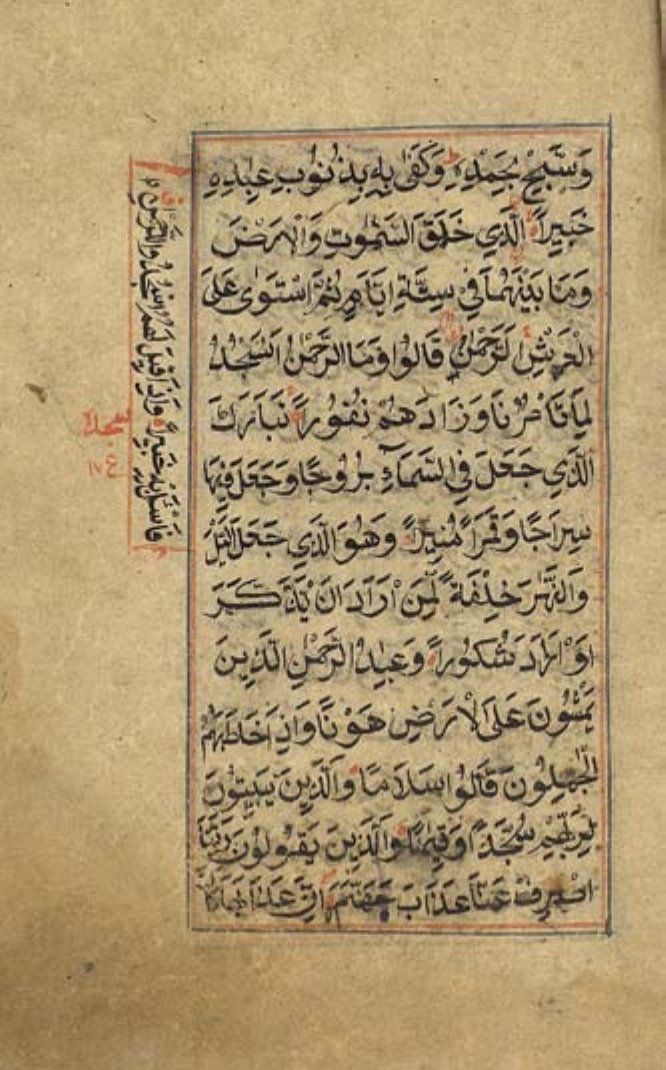 وَسَبِّحْ بِحَمْدِهِ وَكَفٰى بِهٖ بِذُنُوبِ عِبَادِهِ
خَبِيرًا الَّذِي خَلَقَ السَّمٰوٰتِ وَالْاَرْضَ
وَمَا بَيْنَهُمَا فِي سِتَّةِ اَيَّامٍ ثُمَّ اسْتَوٰى عَلَى
الْعَرْشِ الرَّحْمٰنُ قَالُوا وَمَا الرَّحْمٰنُ اَنَسْجُدُ
لِمَا تَأْمُرُنَا وَزَادَهُمْ نُفُورًا تَبَارَكَ
الَّذِي جَعَلَ فِي السَّمَاءِ بُرُوجًا وَجَعَلَ فِيهَا
سِرَاجًا وَقَمَرًا مُنِيرًا وَهُوَ الَّذِي جَعَلَ الَّيْلَ
وَالنَّهَارَ خِلْفَةً لِمَنْ اَرَادَ اَنْ يَذَّكَّرَ
اَوْ اَرَادَ شُكُورًا وَعِبَادُ الرَّحْمٰنِ الَّذِينَ
يَمْشُونَ عَلَى الْاَرْضِ هَوْنًا وَاِذَا خَاطَبَهُمُ
الْجٰهِلُونَ قَالُوا سَلَامًا وَالَّذِينَ يَبِيتُونَ
لِرَبِّهِمْ سُجَّدًا وَقِيَامًا وَالَّذِينَ يَقُولُونَ رَبَّنَا
اصْرِفْ عَنَّا عَذَابَ جَهَنَّمَ اِنَّ عَذَابَهَا كَانَ
فَاسْئَلْ بِهٖ خَبِيرًا وَاِذَا قِيلَ لَهُمُ اسْجُدُوا لِلرَّحْمٰنِ
سجدة
ع ١٧